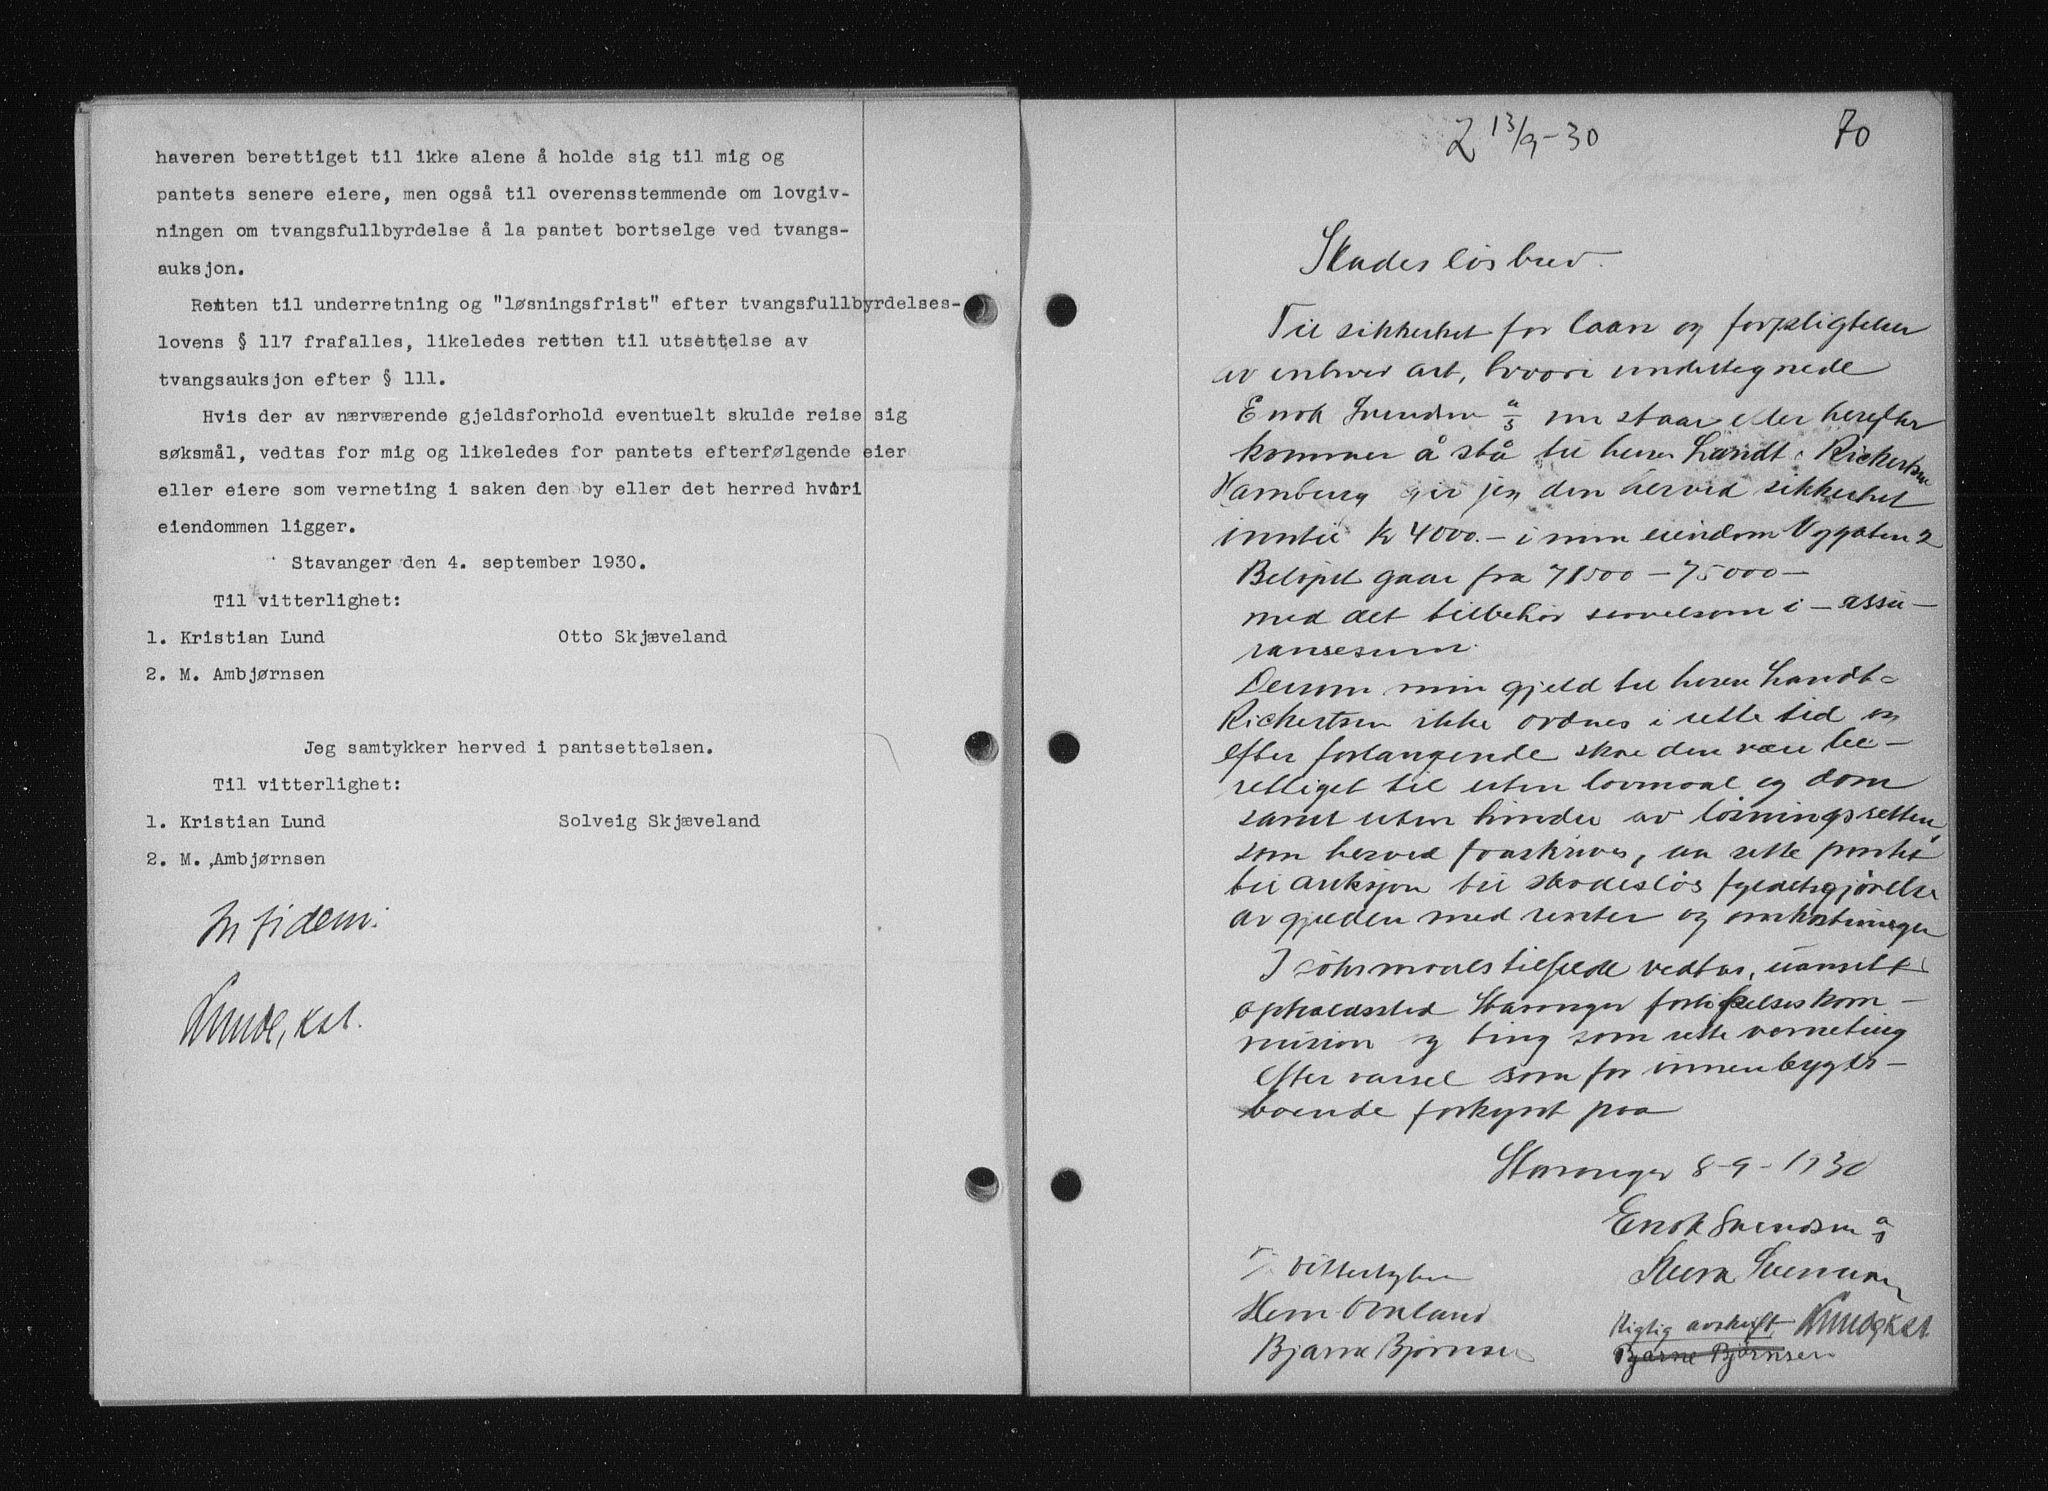 haveren berettiget til ikke alene å holde sig til mig og
pantets senere eiere, men også til overensstemmende om lovgiv-
ningen om tvangsfullbyrdelse å la pantet bortselge ved tvangs-
auksjon.
Retten til underretning og "løsningsfrist" efter tvangsfullbyrdelses-
lovens § 117 frafalles, likeledes retten til utsettelse av
tvangsauksjon efter § 111.
Hvis der av nærværende gjeldsforhold eventuelt skulde reise sig
søksmål, vedtas for mig og likeledes for pantets efterfølgende eier
eller eiere som verneting i saken den by eller det herred hvori
eiendommen ligger.
Stavanger den 4. september 1930.
Til vitterlighet:
1. Kristian Lund Otto Skjæveland
2. M. Ambjørnsen
Jeg samtykker herved i pantsettelsen.
Til vitterlighet:
1. Kristian Lund Solveig Skjæveland
2. M. Ambjørnsen
In fidem:
Lunde, kst.
2 13/9-30 70
Skadesløsbrev.
Til sikkerhet for laan og forpligtelser
av enhver art, hvori undertegnede
Enok Svendsen a/s nu staar eller herefter
kommer å stå til herrer Landt & Rickertsen
Hamburg gir jeg den herved sikkerhet
inntil kr 4000.- i min eiendom Nygaten 2
Beløpet gaar fra 71000 - 75000 -
med det tilbehør saavelsom i - assu-
ransesum.
Dersom min gjeld til herrer Landt &
Rickertsen ikke ordnes i rette tid og
efter forlangende skal den være be-
rettiget til uten lovmaal og dom
samt uten hinder av løsningsretten,
som herved fraskrives, aa sette pantet
til auksjon til skadesløs fyldestgjørelse
av gjelden med renter og omkostninger
I søksmaalstilfelde vedtas, uansett
opholdssted Stavanger forlikelseskom-
mision og ting som rette verneting
efter varsel som for innenbygds-
boende forkynt paa
Stavanger 8-9-1930
Enok Svendsen a/s
Til vitterlighet
Bjarne Bjørnsen
Rigtig avskrift Lunde, kst.
Bjarne Bjørnsen